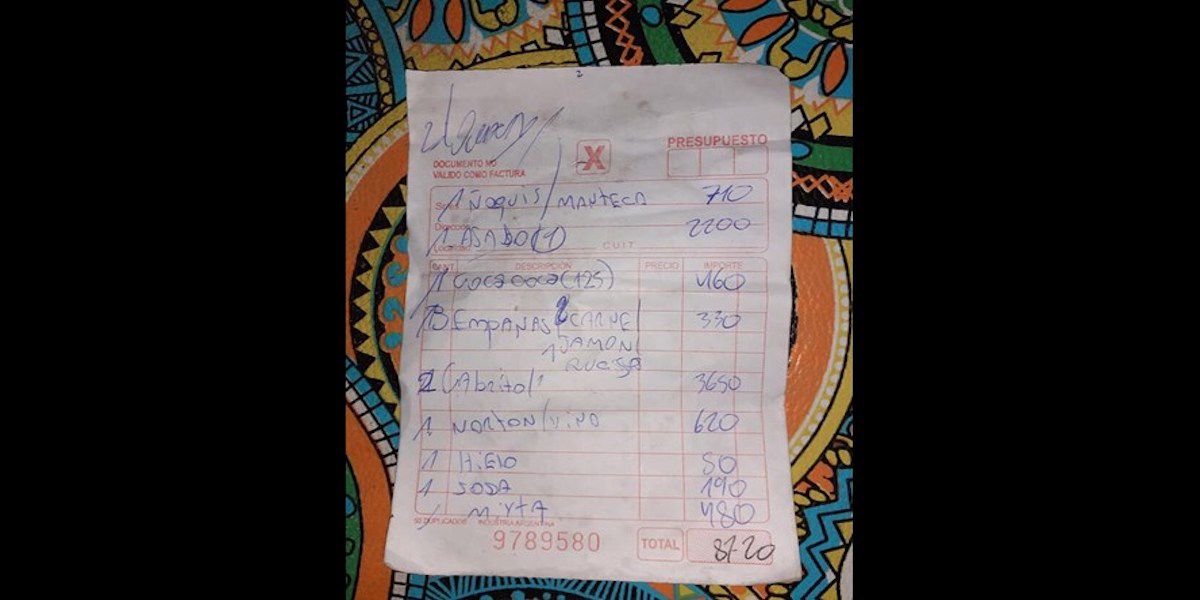 2
DOCUMENTO NO
VALIDO COMO FACTURA
X
PRESUPUESTO
1 ÑOQUIS / MANTECA 710
1 ASADO (1) 2200
C.U.I.T.
CANT. DESCRIPCIÓN PRECIO IMPORTE
1 coca coca (125) 460
3 EMPANAS 2 CARNE / 330
1 JAMON /
QUESO
2 CAbrito / 1 3650
1 NORTON / VINO 620
1 HIELO 50
1 SODA 190
1 MIXTA 480
50 DUPLICADOS INDUSTRIA ARGENTINA
9789580 TOTAL 8720